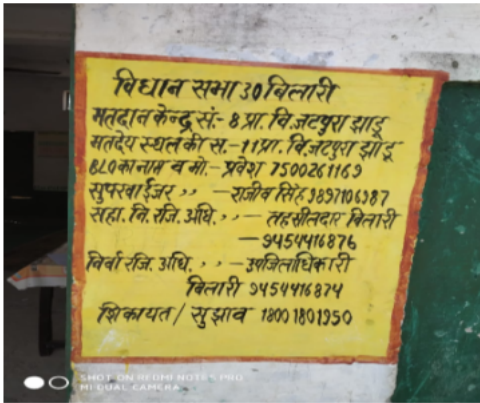 विधान सभा 30 बिलारी
मतदान केन्द्र सं.- 8 प्रा. वि. जटपुरा झाडू
मतदेय स्थल की सं.- 11 प्रा. वि. जटपुरा झाडू
BLO का नाम व मो.- प्रवेश 7500261169
सुपरवाईजर ,, - राजीव सिंह 9897106987
सहा. वि. रजि. अधि. ,, - तहसीलदार बिलारी
- 9454416876
निर्वा रजि. अधि. ,, - उपजिलाधिकारी
बिलारी 9454416874
शिकायत / सुझाव 1800 1801950
SHOT ON REDMI NOTE 5 PRO
MI DUAL CAMERA